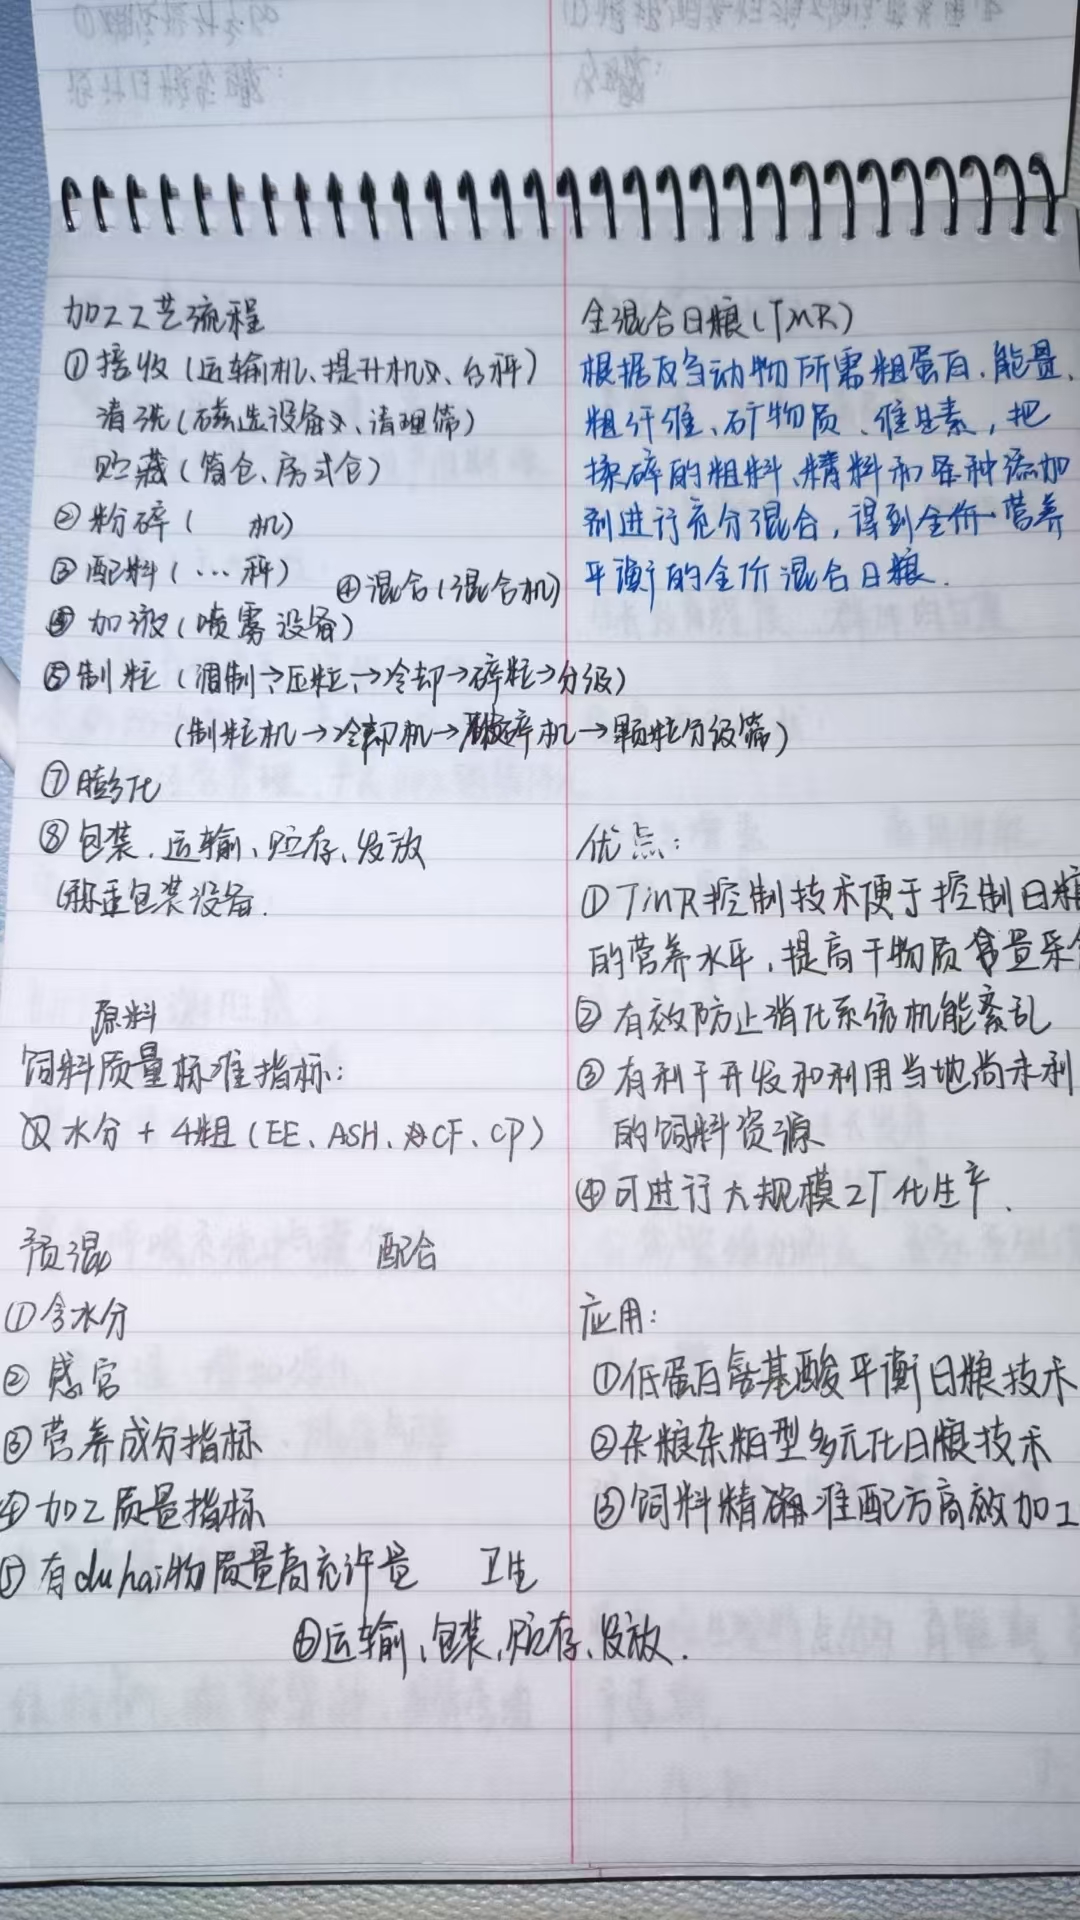 加工工艺流程
①接收(运输机、提升机、台秤)
清洗(磁选设备、清理筛)
贮藏(筒仓、房式仓)
②粉碎(  机)
③配料(…秤)
④混合(混合机)
⑤加液(喷雾设备)
⑤制粒(调制→压粒→冷却→碎粒→分级)
(制粒机→冷却机→碎机→颗粒分级筛)
⑦膨化
⑧包装、运输、贮存、发放
(称重包装设备.
原料
饲料质量标准指标:
水分+4粗(EE、ASH、CF、CP)
预混 配合
①含水分
②感官
③营养成分指标
④加工质量指标
⑤有du hai物质量高允许量 卫生
⑥运输、包装、贮存、发放.
全混合日粮(TMR)
根据反刍动物所需粗蛋白、能量、
粗纤维、矿物质、维生素,把
揉碎的粗料、精料和各种添加
剂进行充分混合,得到营养
平衡的全价混合日粮.
优点:
①TMR控制技术便于控制日粮
的营养水平,提高干物质采食
②有效防止消化系统机能紊乱
③有利于开发和利用当地尚未利
的饲料资源
④可进行大规模工厂化生产.
应用:
①低蛋白氨基酸平衡日粮技术
②杂粮杂粕型多元化日粮技术
③饲料精准配方高效加工